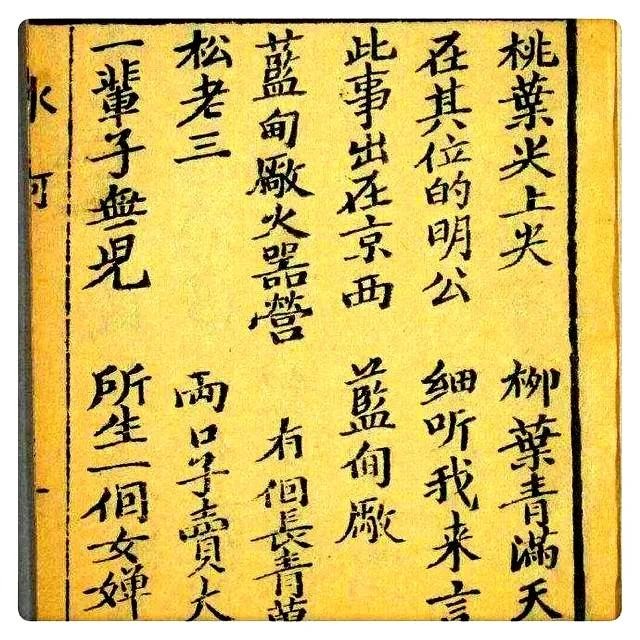 桃葉尖上尖 柳葉青滿天
在其位的明公 細听我来言
此事出在京西 藍甸厰
藍甸厰火器營 有佪長青萬
松老三 両口子賣大
一輩子無児 所生一佪女婵